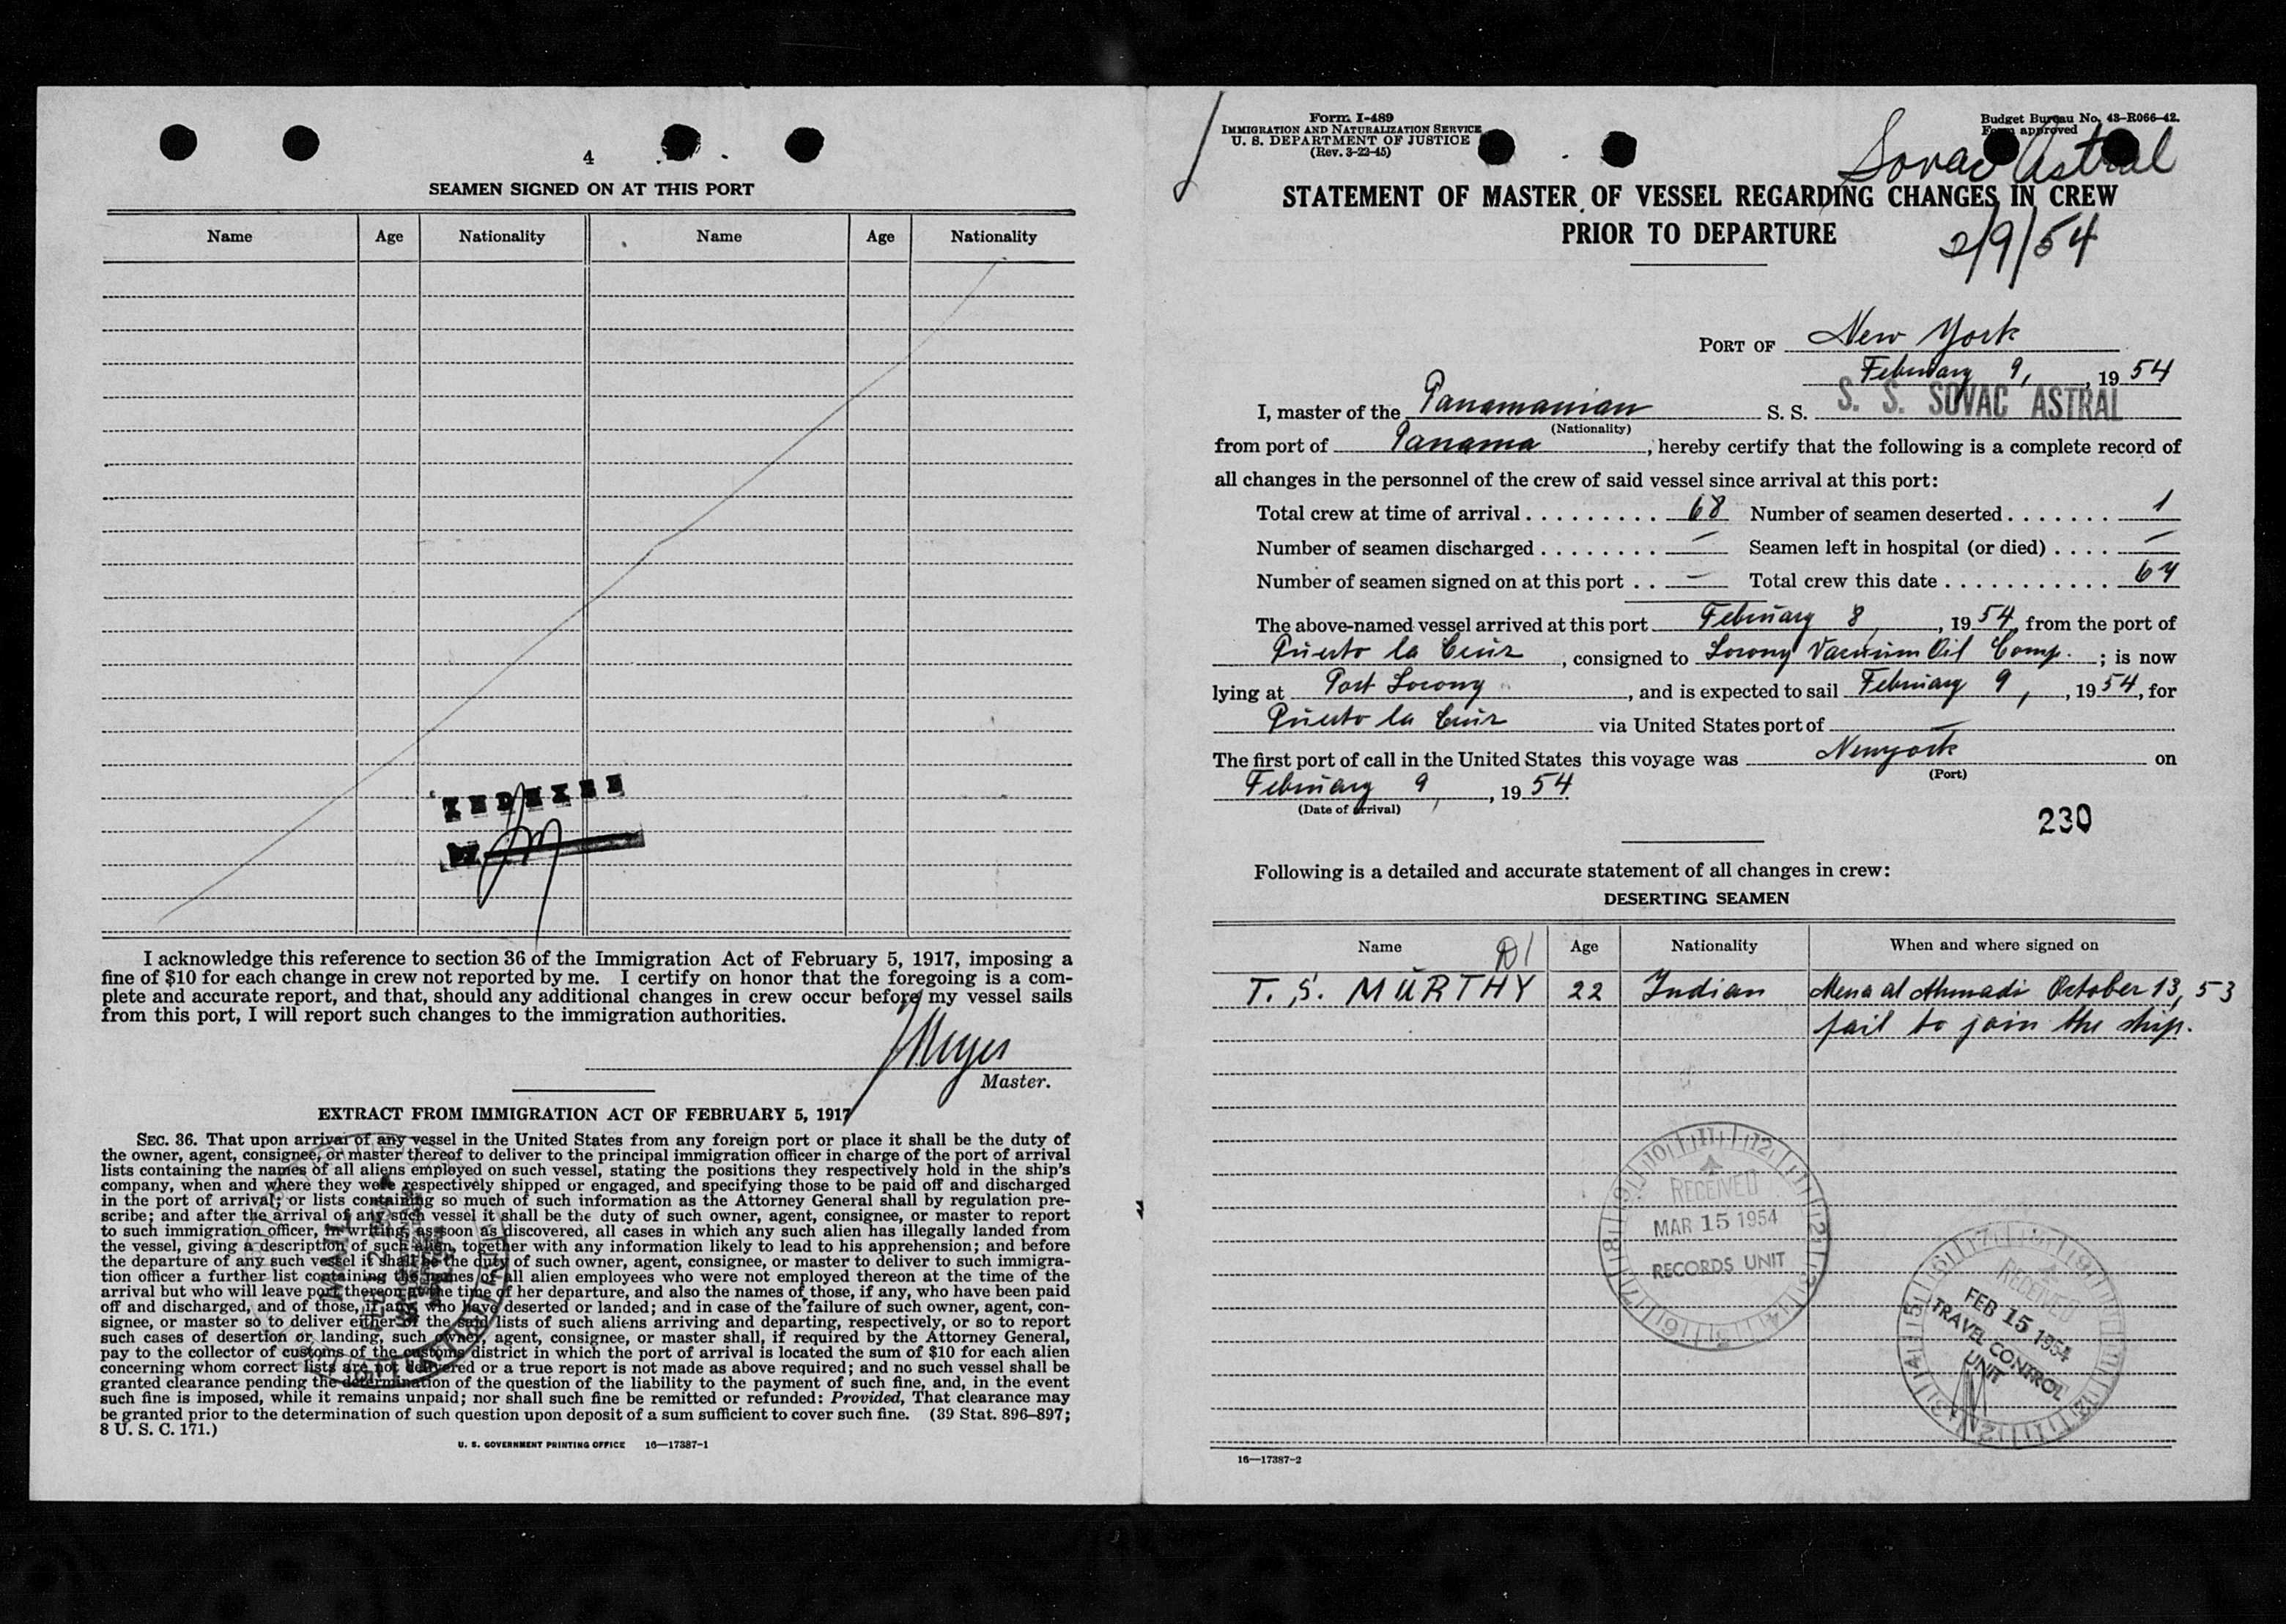 4
SEAMEN SIGNED ON AT THIS PORT
Name Age Nationality Name Age Nationality
INDEXED
BY
I acknowledge this reference to section 36 of the Immigration Act of February 5, 1917, imposing a
fine of $10 for each change in crew not reported by me. I certify on honor that the foregoing is a com-
plete and accurate report, and that, should any additional changes in crew occur before my vessel sails
from this port, I will report such changes to the immigration authorities.
Meyer
Master.
EXTRACT FROM IMMIGRATION ACT OF FEBRUARY 5, 1917
SEC. 36. That upon arrival of any vessel in the United States from any foreign port or place it shall be the duty of
the owner, agent, consignee, or master thereof to deliver to the principal immigration officer in charge of the port of arrival
lists containing the names of all aliens employed on such vessel, stating the positions they respectively hold in the ship's
company, when and where they were respectively shipped or engaged, and specifying those to be paid off and discharged
in the port of arrival; or lists containing so much of such information as the Attorney General shall by regulation pre-
scribe; and after the arrival of any such vessel it shall be the duty of such owner, agent, consignee, or master to report
to such immigration officer, in writing, as soon as discovered, all cases in which any such alien has illegally landed from
the vessel, giving a description of such alien, together with any information likely to lead to his apprehension; and before
the departure of any such vessel it shall be the duty of such owner, agent, consignee, or master to deliver to such immigra-
tion officer a further list containing the names of all alien employees who were not employed thereon at the time of the
arrival but who will leave port thereon at the time of her departure, and also the names of those, if any, who have been paid
off and discharged, and of those, if any, who have deserted or landed; and in case of the failure of such owner, agent, con-
signee, or master so to deliver either of the said lists of such aliens arriving and departing, respectively, or so to report
such cases of desertion or landing, such owner, agent, consignee, or master shall, if required by the Attorney General,
pay to the collector of customs of the customs district in which the port of arrival is located the sum of $10 for each alien
concerning whom correct lists are not delivered or a true report is not made as above required; and no such vessel shall be
granted clearance pending the determination of the question of the liability to the payment of such fine, and, in the event
such fine is imposed, while it remains unpaid; nor shall such fine be remitted or refunded: Provided, That clearance may
be granted prior to the determination of such question upon deposit of a sum sufficient to cover such fine. (39 Stat. 896–897;
8 U. S. C. 171.)
U. S. GOVERNMENT PRINTING OFFICE 16—17387-1
Form I-489
IMMIGRATION AND NATURALIZATION SERVICE
U. S. DEPARTMENT OF JUSTICE
(Rev. 3-22-45)
Budget Bureau No. 43-R066-42.
Form approved
Sovac Astral
STATEMENT OF MASTER OF VESSEL REGARDING CHANGES IN CREW
PRIOR TO DEPARTURE
2/9/54
PORT OF New York
February 9, , 19 54
I, master of the Panamanian S. S. S. S. SOVAC ASTRAL
(Nationality)
from port of Panama , hereby certify that the following is a complete record of
all changes in the personnel of the crew of said vessel since arrival at this port:
Total crew at time of arrival . . . . . . . . . 68 Number of seamen deserted . . . . . . . 1
Number of seamen discharged . . . . . . . . — Seamen left in hospital (or died) . . . . —
Number of seamen signed on at this port . . — Total crew this date . . . . . . . . . . . 67
The above-named vessel arrived at this port February 8, , 19 54, from the port of
Puerto la Cruz , consigned to Socony Vacuum Oil Comp. ; is now
lying at Port Socony , and is expected to sail February 9, , 19 54, for
Puerto la Cruz via United States port of —
The first port of call in the United States this voyage was Newyork on
(Port)
February 9, , 19 54
(Date of arrival)
230
Following is a detailed and accurate statement of all changes in crew:
DESERTING SEAMEN
Name Age Nationality When and where signed on
T. S. MURTHY 22 Indian Mena al Ahmadi October 13, 53
fail to join the ship.
RECEIVED
MAR 15 1954
RECORDS UNIT
RECEIVED
FEB 15 1954
TRAVEL CONTROL
UNIT
16—17387-2